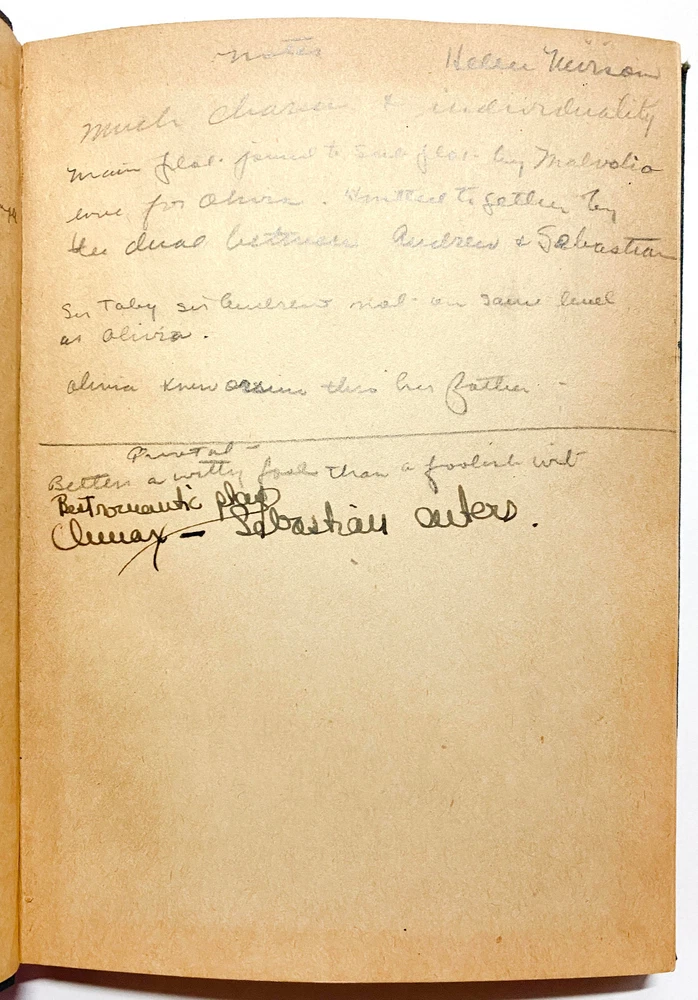 Notes Helen
much charm & individuality
main plot joined to sub plot by Malvolio
love for Olivia. Knitted together by
the dual between Andrew & Sebastian
Sir Toby sir Andrew not on same level
as Olivia.
Olivia knew Orsino thro her father -
Pivotal -
Better a witty fool than a foolish wit
Best romantic play
Climax - Sebastian enters.